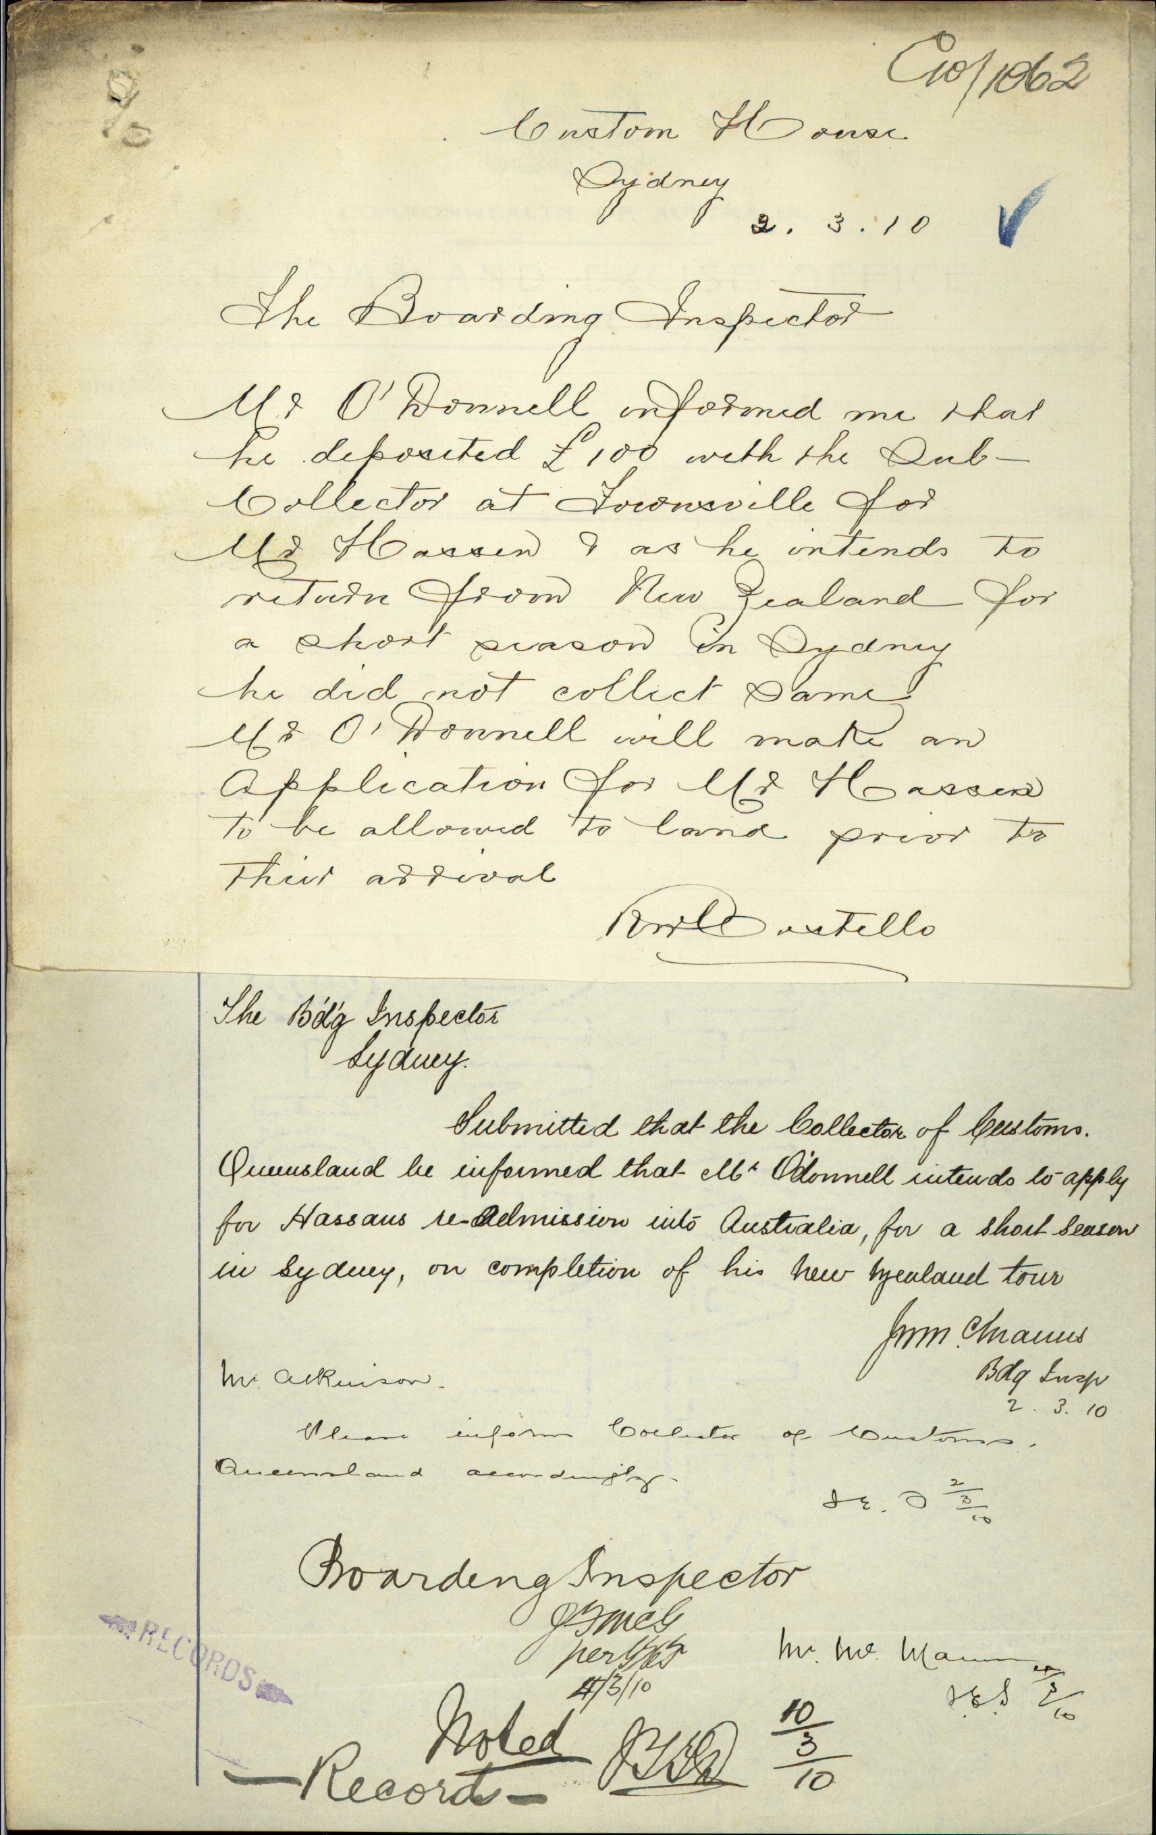 C10/1862
Custom House
Sydney
2. 3. 10
The Boarding Inspector
Mr O'Donnell informed me that
he deposited £100 with the Sub-
Collector at Townsville for
Mr Hassen & as he intends to
return from New Zealand for
a short season in Sydney
he did not collect same
Mr O'Donnell will make an
Application for Mr Hassen
to be allowed to land prior to
their arrival
Costello
The B'd'g Inspector
Sydney.
Submitted that the Collector of Customs.
Queensland be informed that Mr O'donnell intends to apply
for Hassans re-Admission into Australia, for a short season
in Sydney, on completion of his New Zealand tour
Bdg Insp
2. 3. 10
Mr. Atkinson.
Please inform Collector of Customs.
Queensland accordingly.
2/3/10
Boarding Inspector
per
4/3/10
Mr. Mc. Manus
4/3/10
RECORDS
Noted
10/3/10
- Record -